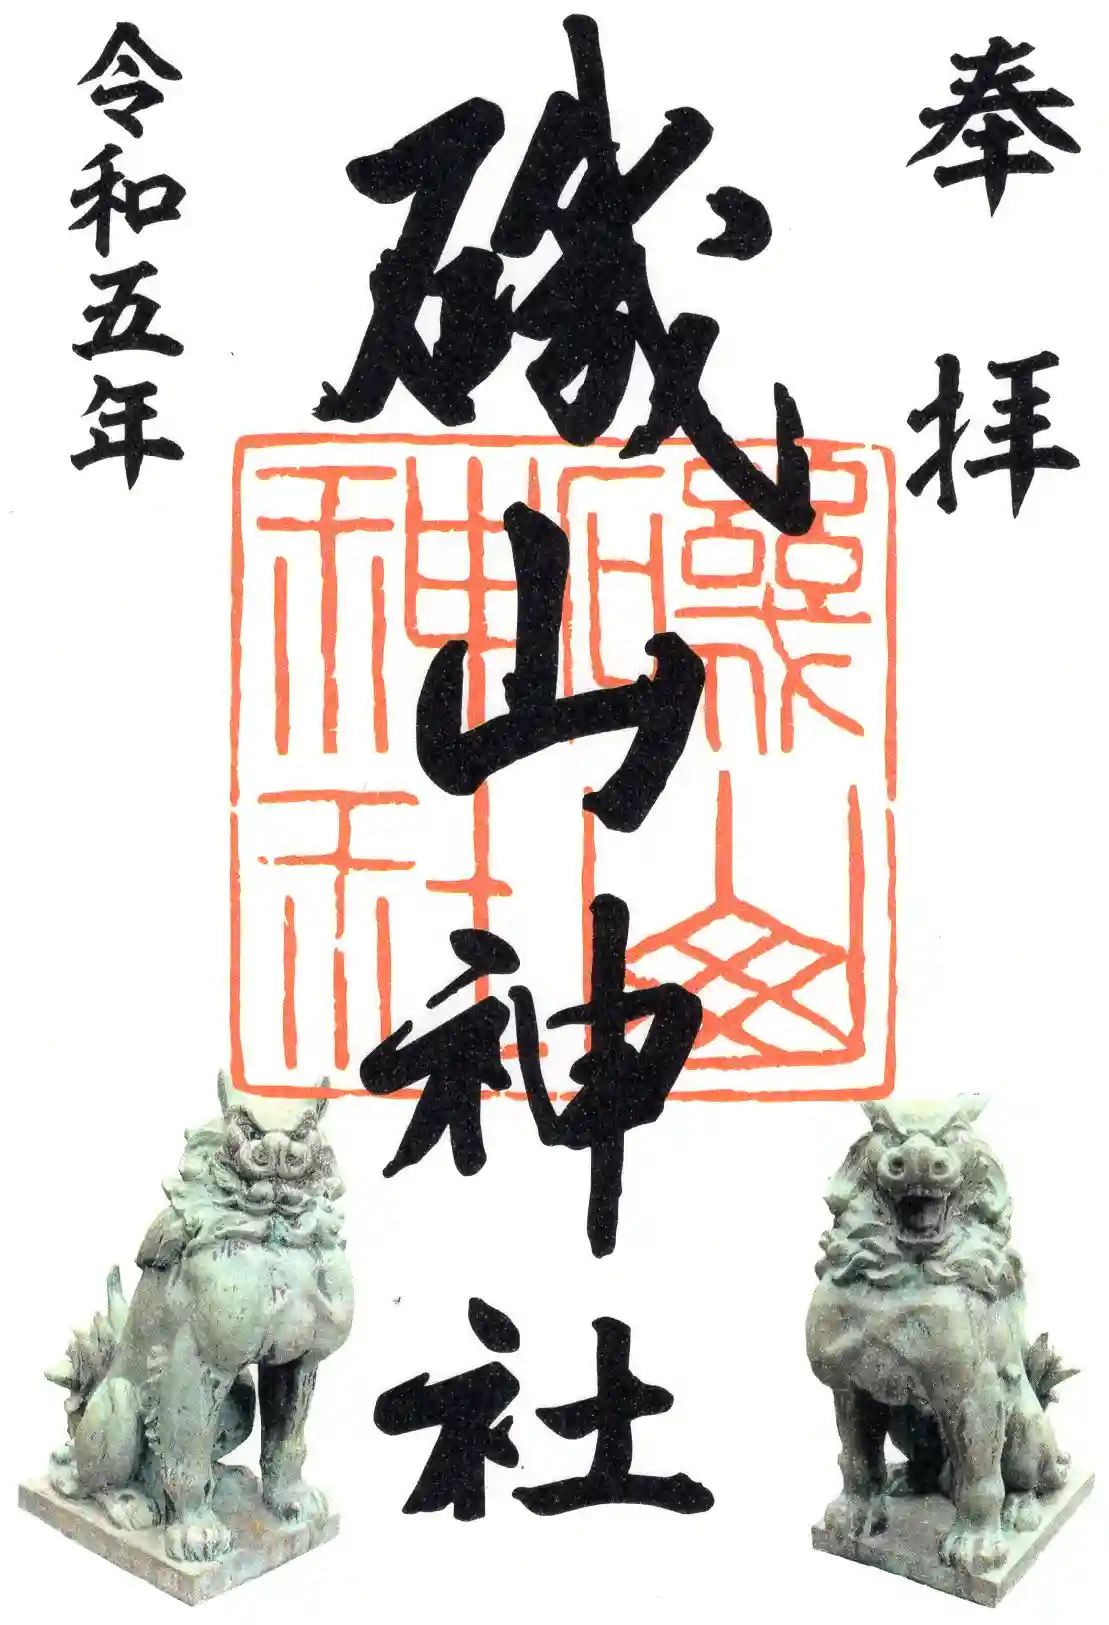 奉拝
磯山神社
令和五年
磯山
神社